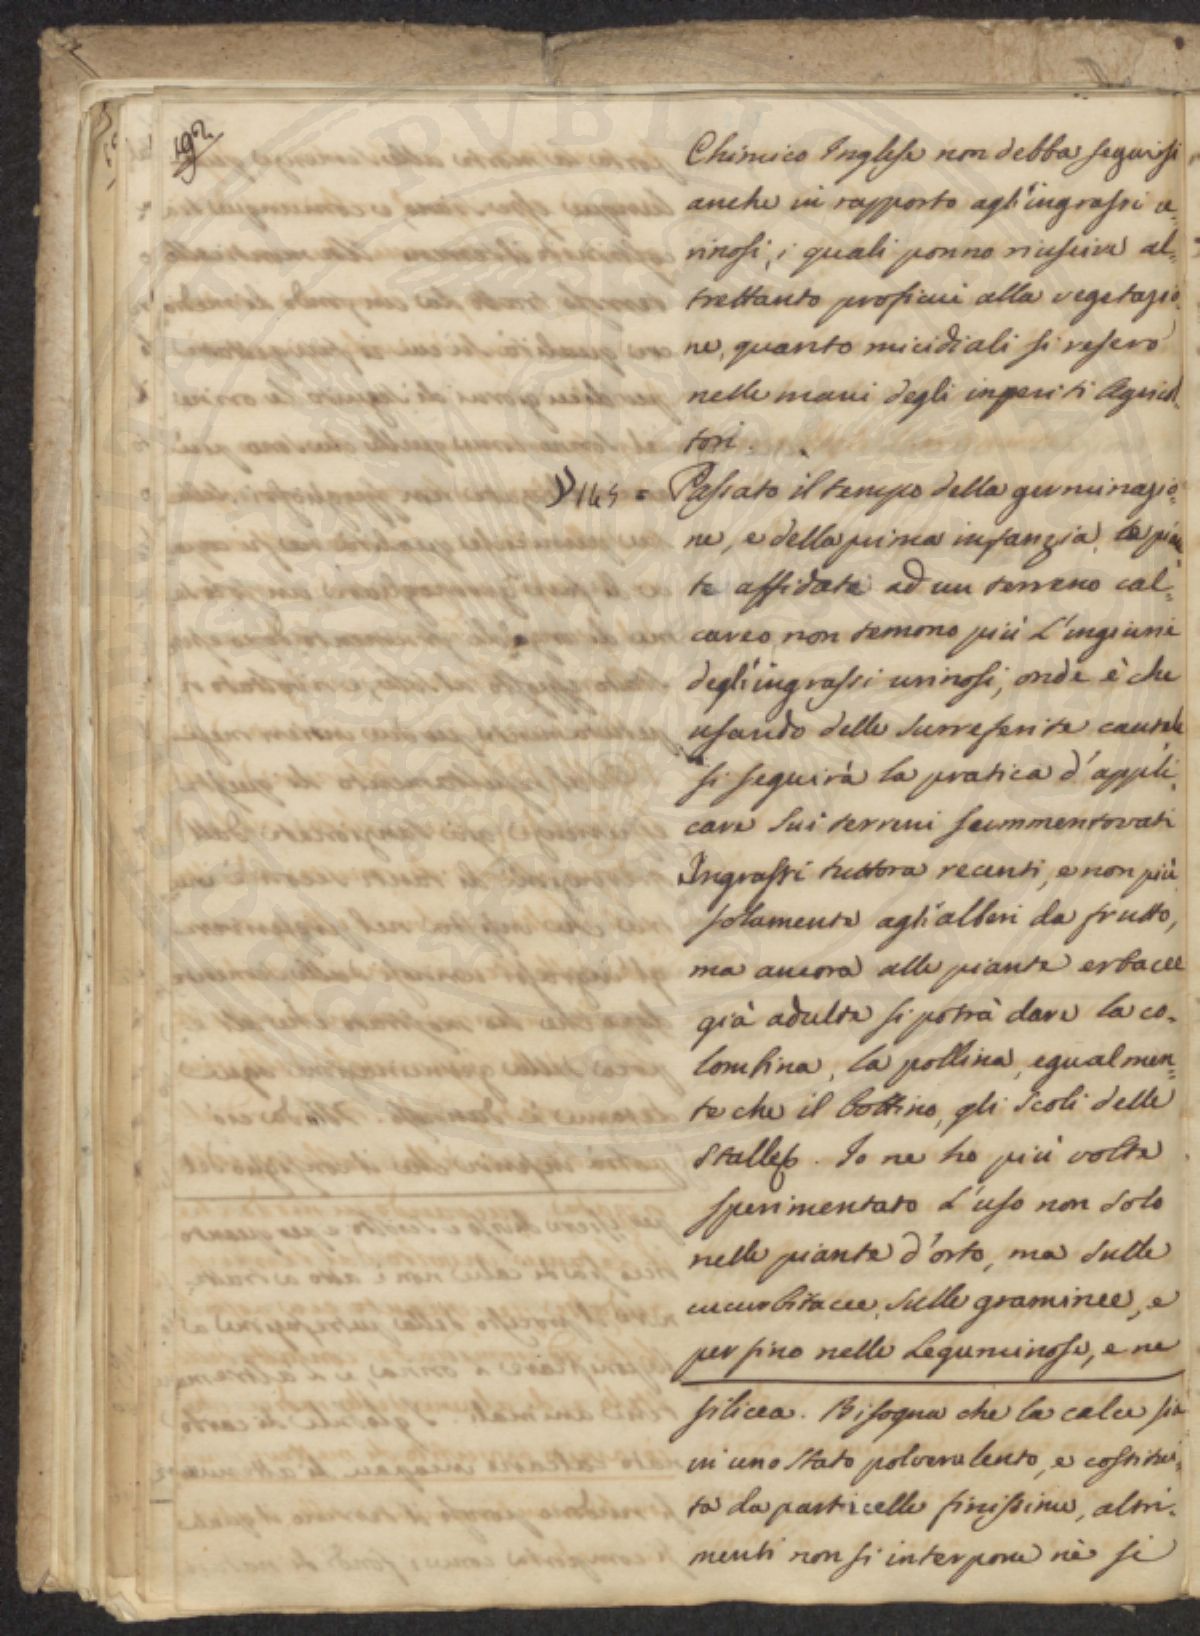 192
Chimico Inglese non debba seguirsi
anche in rapporto agl'ingrassi u-
rinosi, i quali ponno riuscire al-
trettanto proficui alla vegetazio-
ne, quanto micidiali si resero
nelle mani degli imperiti Agricol-
tori.
§ 145 = Passato il tempo della germinazio-
ne, e della prima infanzia, le pian-
te affidate ad un terreno cal-
careo non temono più l'ingiurie
degl'ingrassi urinosi, onde è che
usando delle surreferite cautele
si seguirà la pratica d'appli-
care sui terreni summentovati
Ingrassi tuttora recenti, e non più
solamente agli alberi da frutto,
ma ancora alle piante erbacee
già adulte si potrà dare la co-
lombina, la pollina, egualmen-
te che il bottino, gli scoli delle
stalle. Io ne ho più volte
sperimentato l'uso non solo
nelle piante d'orto, ma sulle
cucurbitacee, sulle graminee, e
per fino nelle Leguminose, e ne
silicea. Bisogna che la calce sia
in uno stato polverulento, e costitui-
ta da particelle finissime, altri-
menti non si interpone nè si